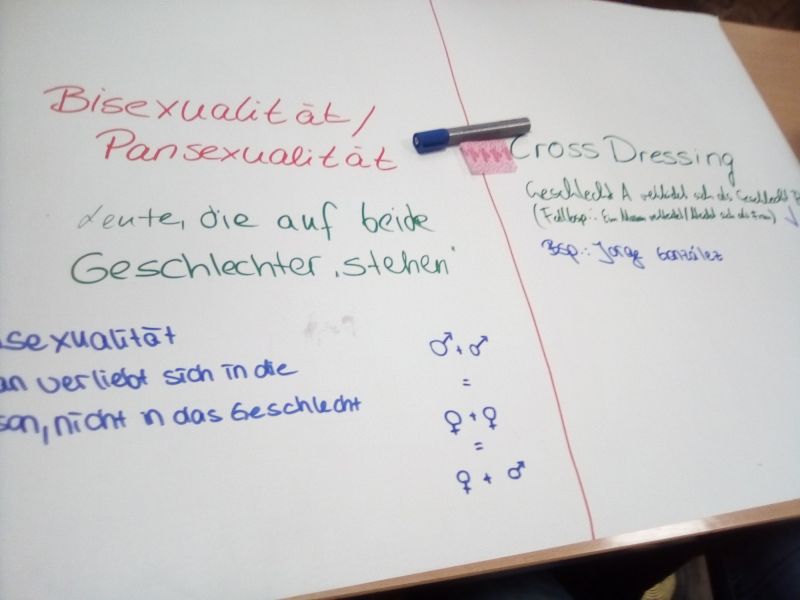 Bisexualität/
Pansexualität
Leute, die auf beide
Geschlechter „stehen“
sexualität
an verliebt sich in die
son, nicht in das Geschlecht
♂ + ♂
=
♀ + ♀
=
♀ + ♂
Cross Dressing
Geschlecht A verkleidet sich als Geschlecht B
(Fallbsp.: Ein Mann verkleidet sich als Frau)
Bsp.: Jorge González